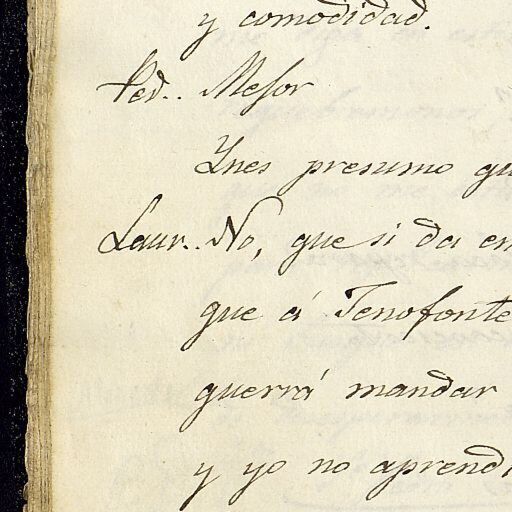 y comodidad.
Ped.. Mesor
Ynes presumo qu
Laur.. No, que si da en
que á Tenofonte
querrá mandar
y yo no aprendi